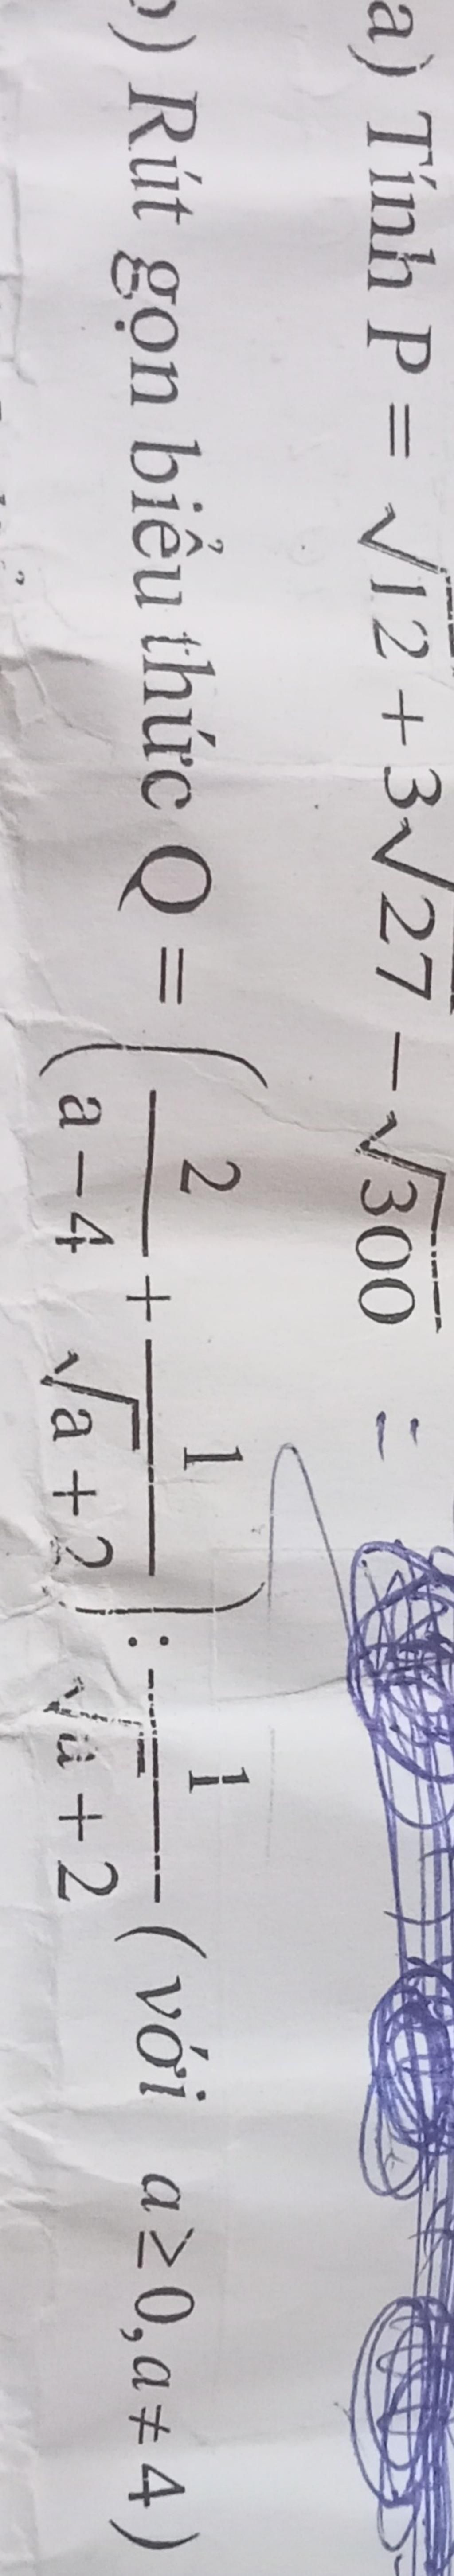 a) Tính P = √12 + 3√27 − √300 =
) Rút gọn biểu thức Q = (2/(a − 4) + 1/(√a + 2)) : 1/(√a + 2) (với a ≥ 0, a ≠ 4)